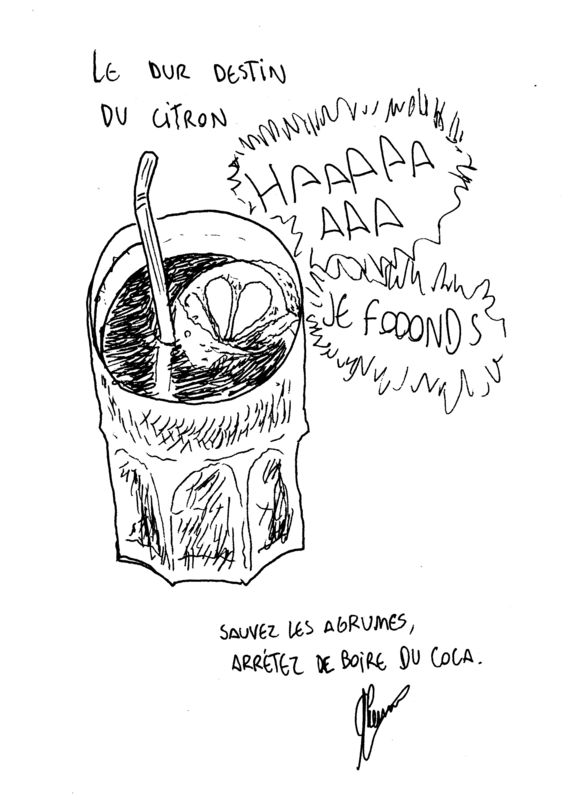 LE DUR DESTIN
DU CITRON
HAAAAAA
AAA
JE FOOONDS
SAUVEZ LES AGRUMES,
ARRÉTEZ DE BOIRE DU COCA.